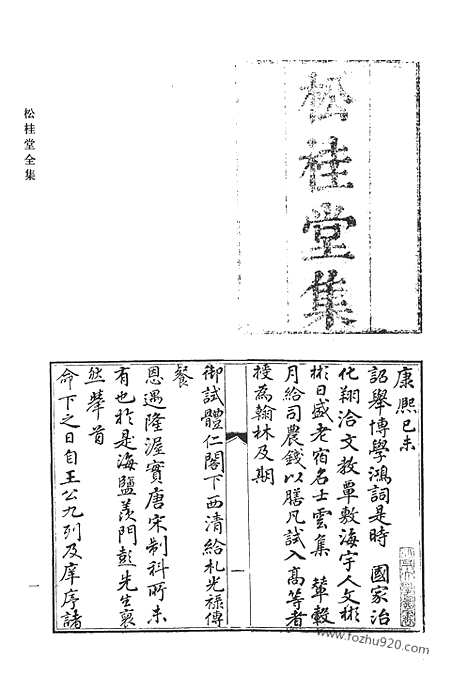 松桂堂全集
松桂堂集
康熙已未
詔舉博學鴻詞是時　國家治
化翔洽文教覃敷海宇人文彬
彬日盛老宿名士雲集　輦轂
月給司農錢以膳凡試入高等者
授為翰林及期
御試體仁閣下西清給札光祿傳
餐
恩遇隆渥實唐宋制科所未
有也於是海鹽羨門彭先生裒
然舉首
命下之日自王公九列及庠序諸
一
一
www.fozhu920.com